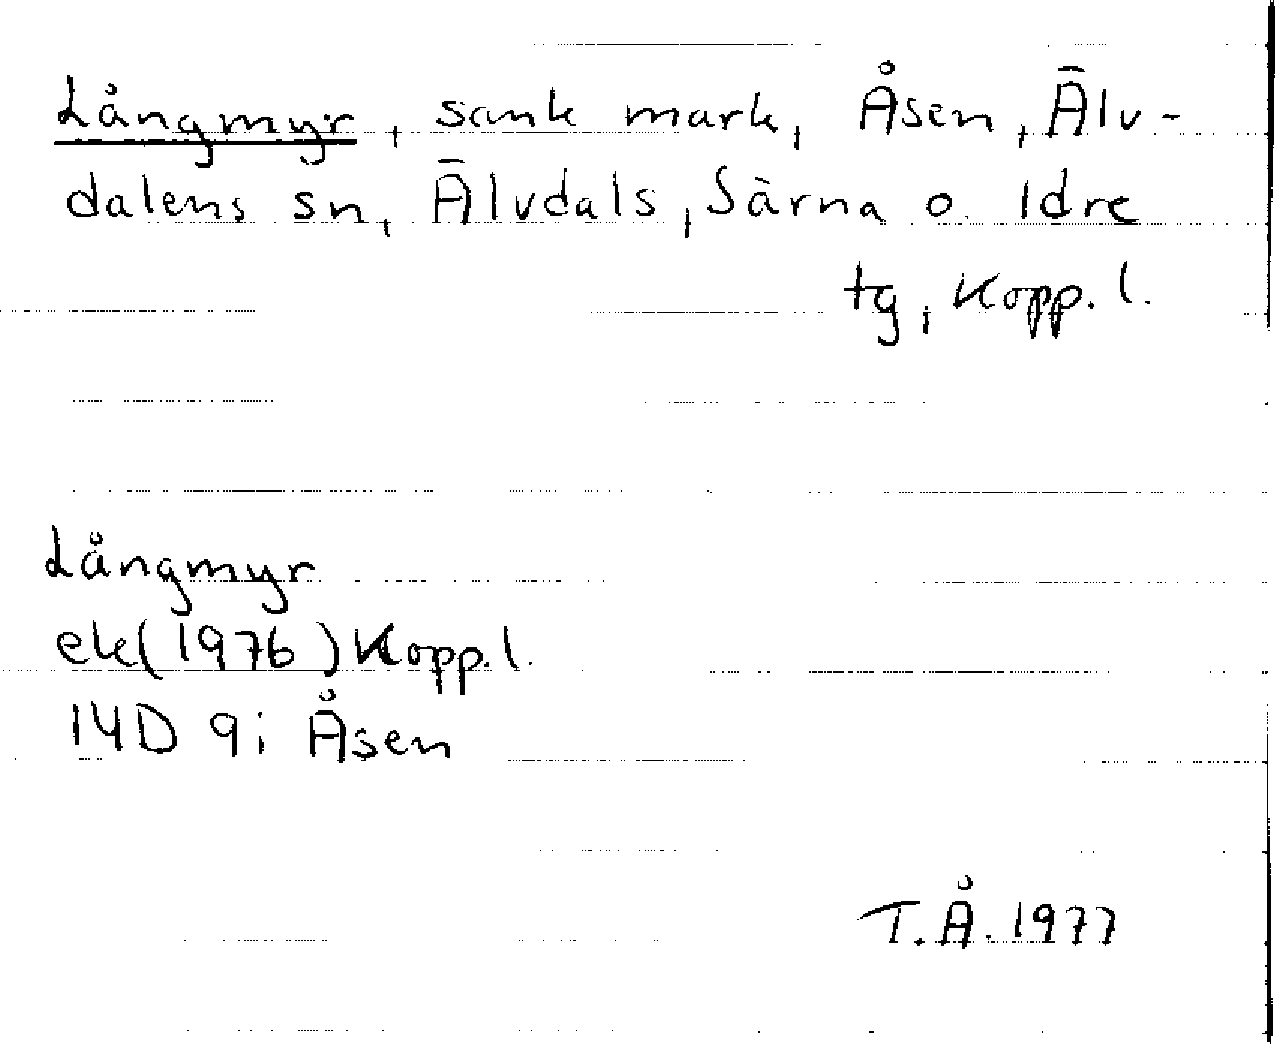 Långmyr, sank mark, Åsen, Älv-
dalens sn, Älvdals, Särna o Idre
tg, Kopp. l.
Långmyr
ek(1976) Kopp. l.
14D 9i Åsen
T.Å. 1977